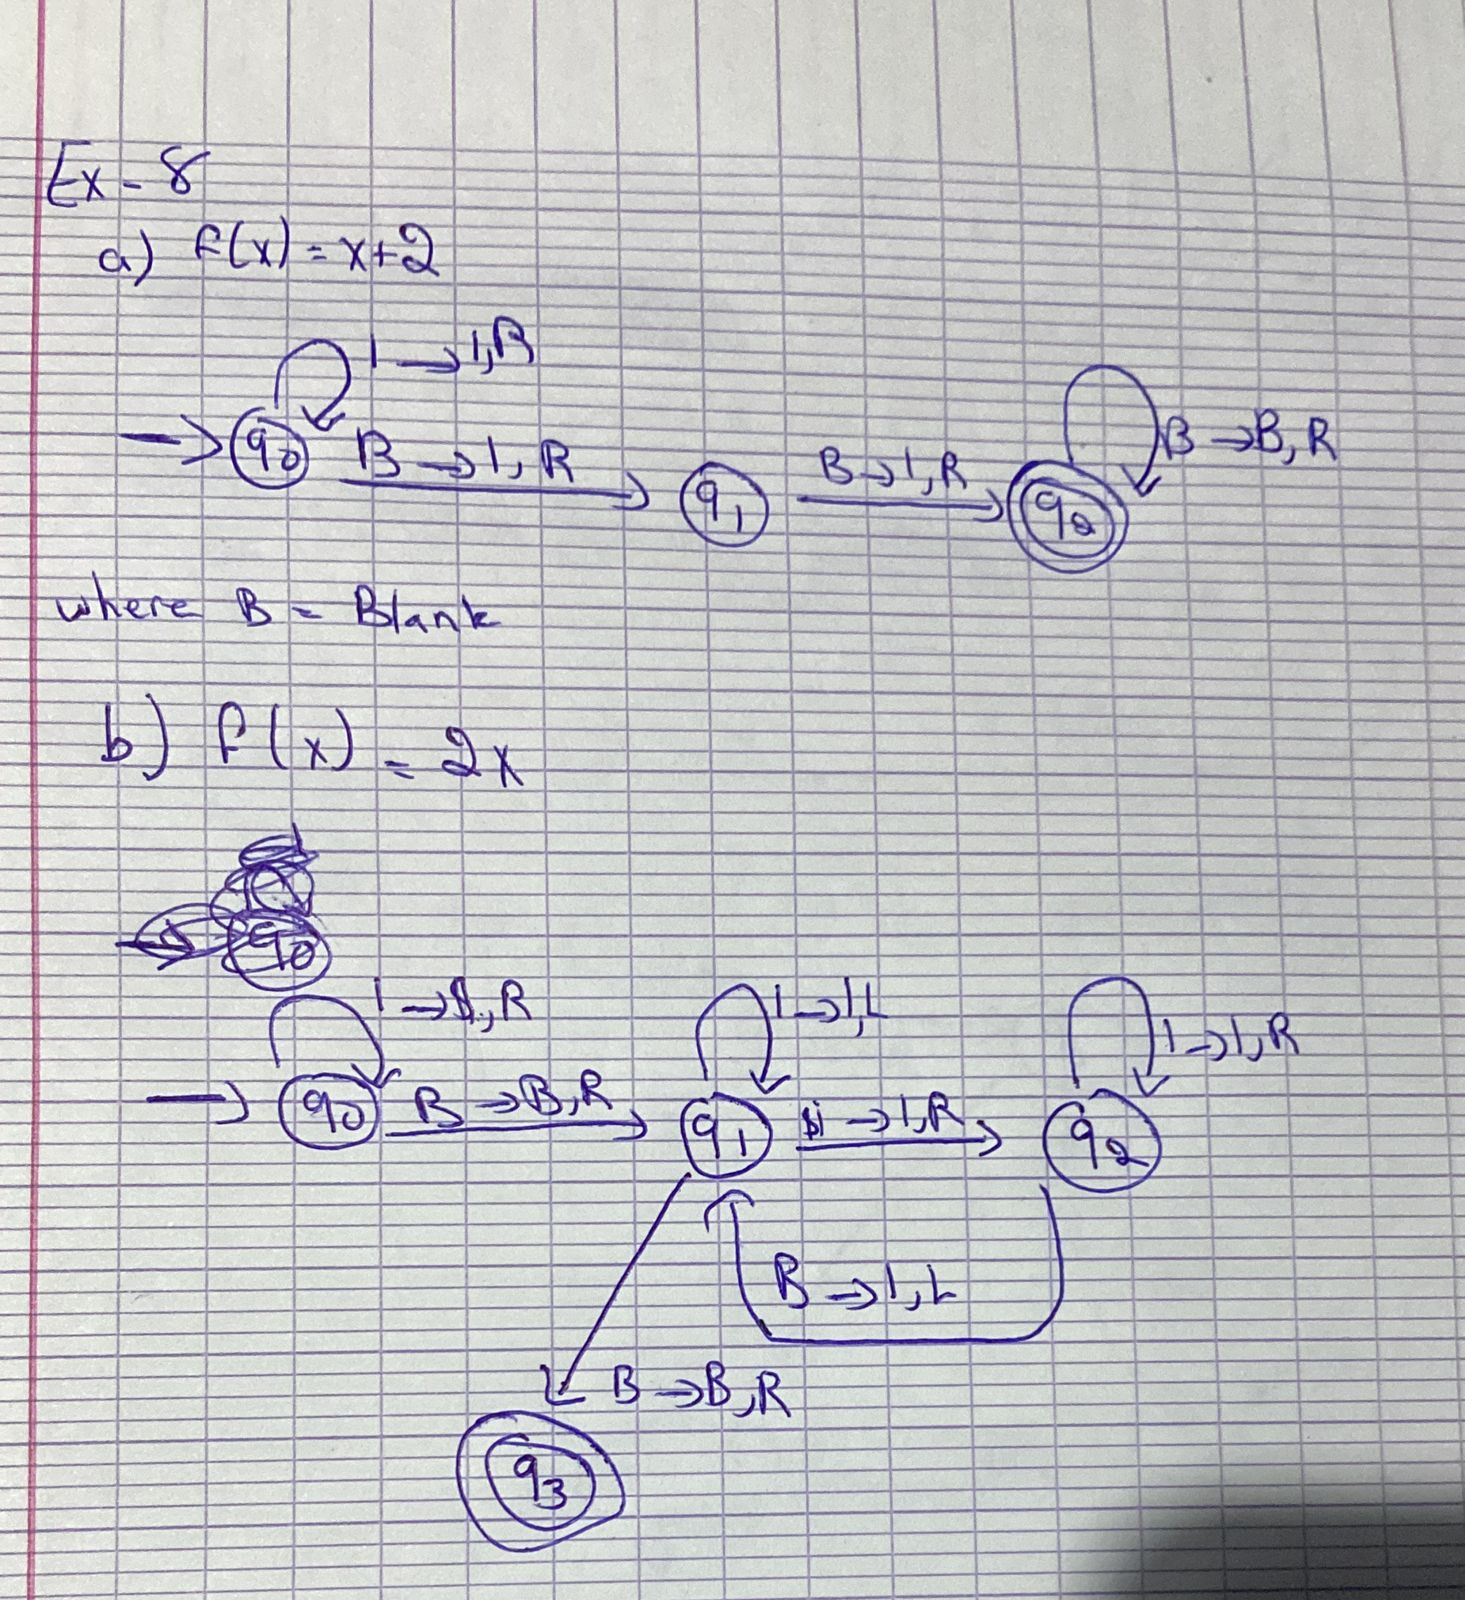 Ex - 8
a) f(x) = x+2
1 → 1,R
B → B, R
q0 B → 1, R q1 B → 1, R q2
where B = Blank
b) f(x) = 2x
q0
1 → $, R 1 → 1, L 1 → 1, R
q0 B → B, R q1 $ → 1, R q2
B → 1, L
B → B, R
q3